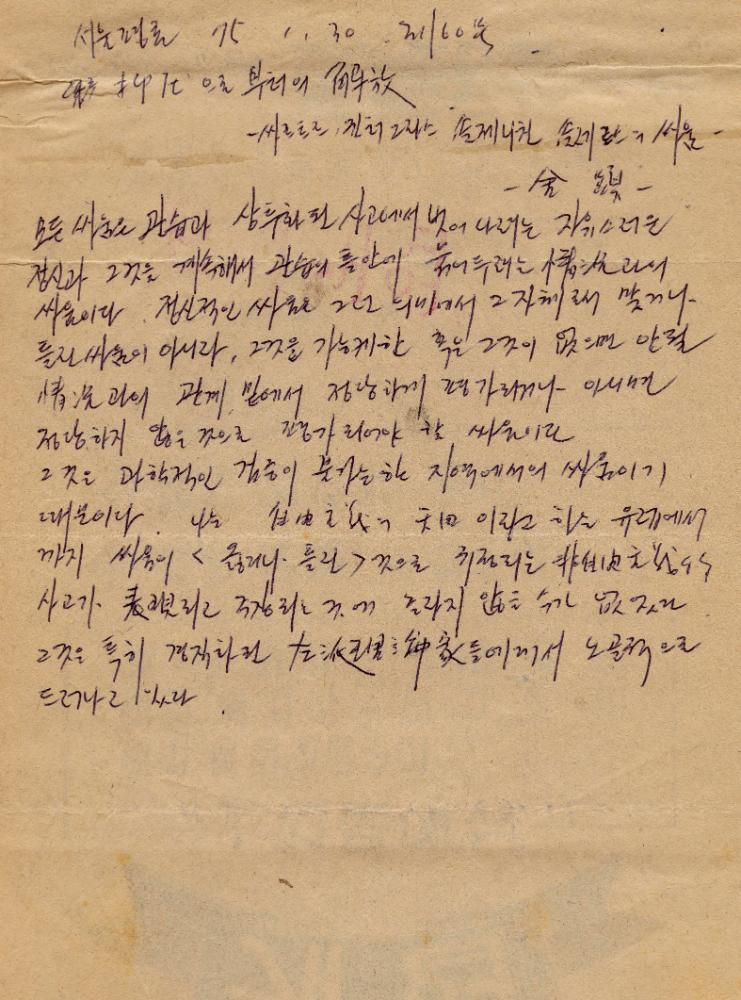 서울평론 75. 1. 30. 제60号
抑圧으로 부터의 解放
- 싸르트르, 귄터그라스 솔제니친 솔레르스의 싸움 -
- 金 現 -
모든 싸움은 관습과 상투화된 사고에서 벗어나려는 자유스러운
정신과 그것을 계속해서 관습의 틀안에 묶어두려는 情況과의
싸움이다. 정신적인 싸움은 그런 의미에서 그 자체로서 맞거나
틀린 싸움이 아니라, 그것을 가능케한 혹은 그것이 없으면 안될
情況과의 관계 밑에서 정당하게 평가되거나 아니면
정당하지 않은 것으로 평가 되어야 할 싸움이다
그것은 과학적인 검증이 불가능한 지역에서의 싸움이기
때문이다. 나는 自由主義의 天国이라고 하는 유럽에서
까지 싸움이 <옳거나 틀린> 것으로 규정되는 非自由主義的
사고가 表現되고 주장되는 것에 놀라지 않을 수가 없었다.
그것은 특히 경직화된 左派 들에게서 노골적으로
드러나고 있다